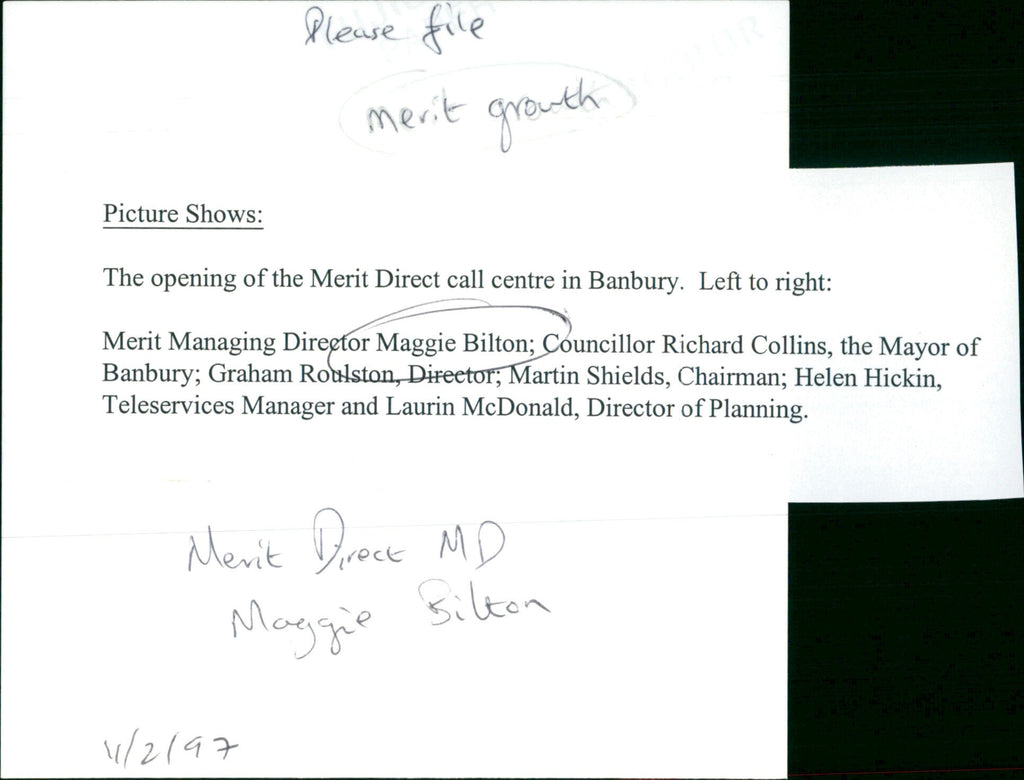 Please file
merit growth
Picture Shows:
The opening of the Merit Direct call centre in Banbury. Left to right:
Merit Managing Director Maggie Bilton; Councillor Richard Collins, the Mayor of
Banbury; Graham Roulston, Director; Martin Shields, Chairman; Helen Hickin,
Teleservices Manager and Laurin McDonald, Director of Planning.
Merit Direct MD
Maggie Bilton
11/2/97